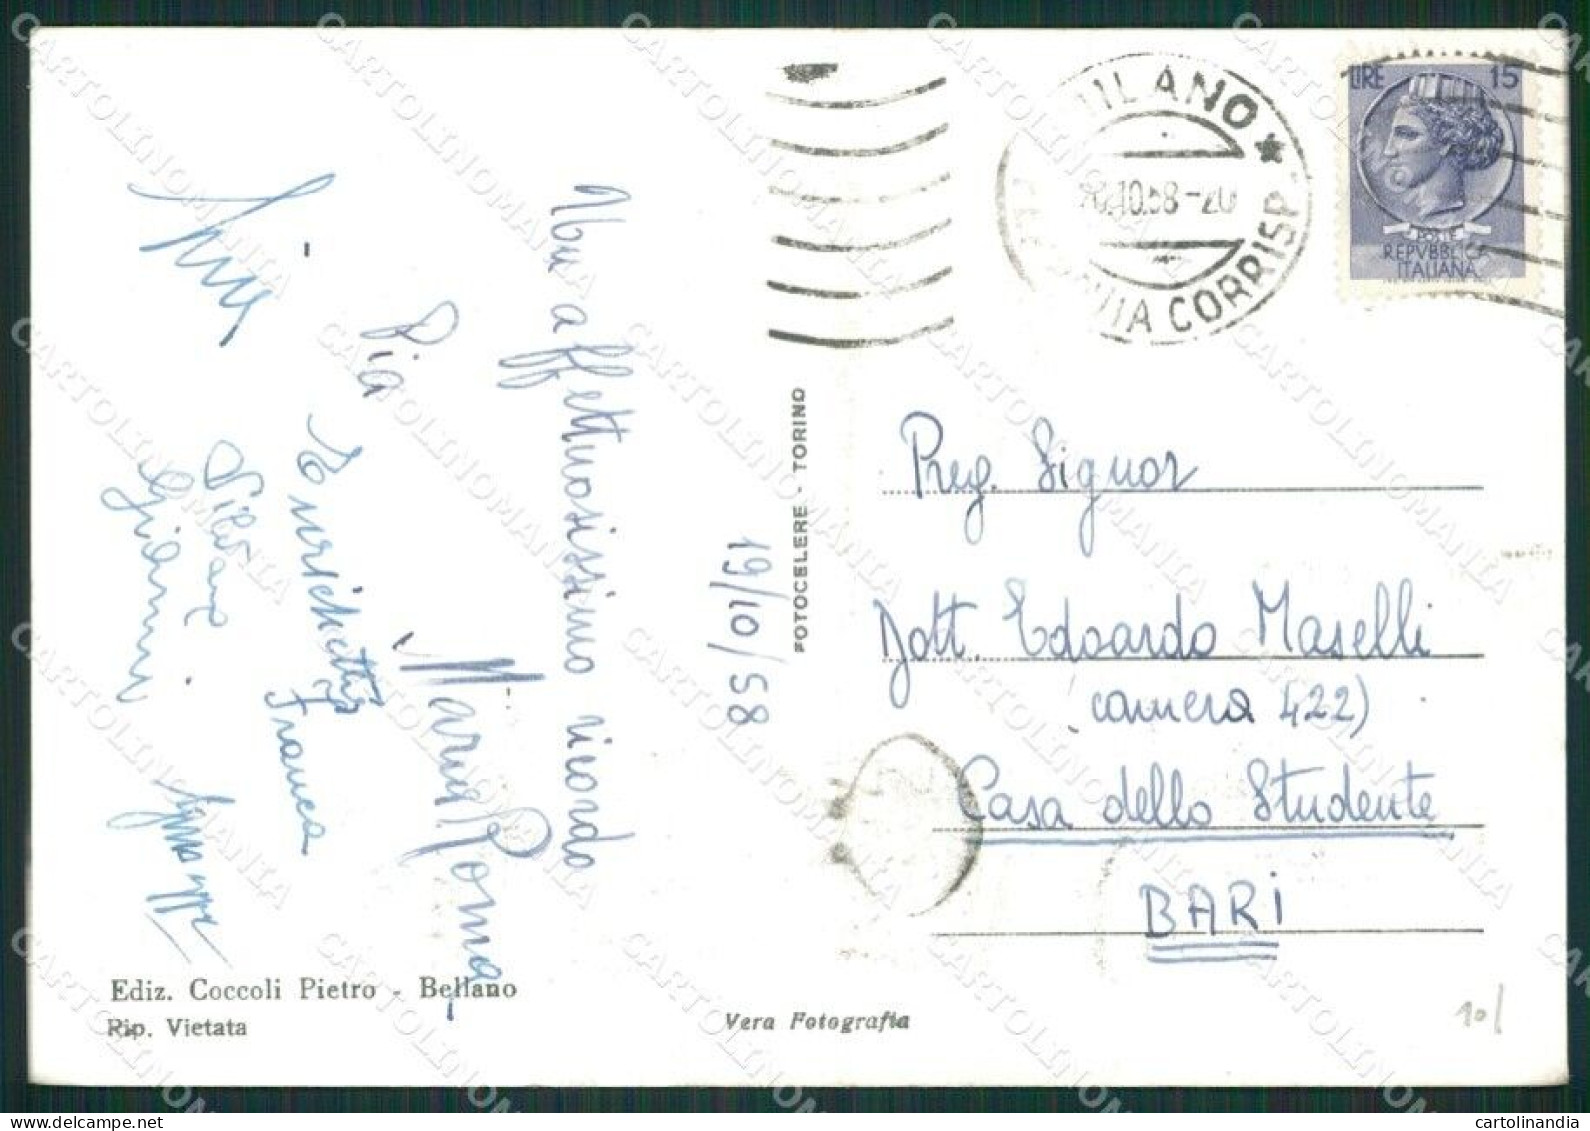 Un affettuosissimo ricordo
Pia
Maria Roma
Enrichetta
Franca
Silvana
Gianni
19/10/58
Ediz. Coccoli Pietro - Bellano
Rip. Vietata
FOTOCELERE - TORINO
Vera Fotografia
MILANO
CORRISP
LIRE 15
POSTE
REPVBBLICA
ITALIANA
Preg. Signor
Dott. Edoardo Maselli
(camera 422)
Casa dello Studente
BARI
10/
CARTOLINOMANIA
cartolinandia